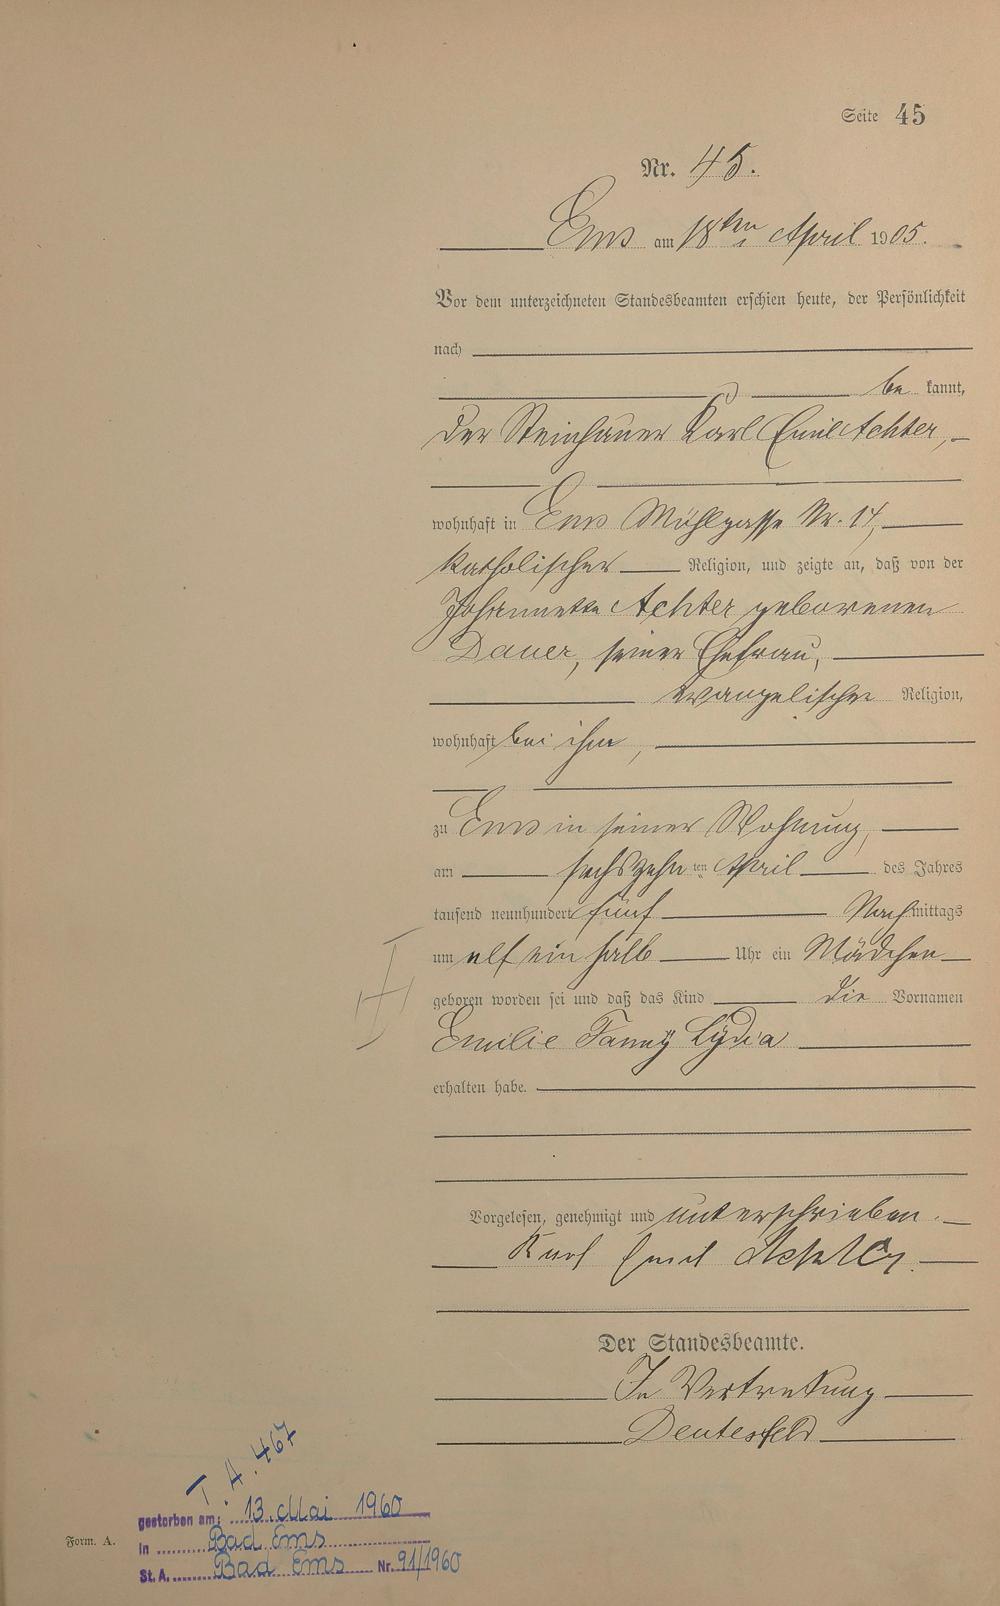 Seite 45
Nr. 45.
Ems am 18ten April 1905.
Vor dem unterzeichneten Standesbeamten erschien heute, der Persönlichkeit
nach
be kannt,
der Steinhauer Karl Emil Achter,
wohnhaft in Ems Mühlgasse Nr. 14,
katholischer Religion, und zeigte an, daß von der
Johannette Achter geborenen
Dauer, seiner Ehefrau,
evangelischer Religion,
wohnhaft bei ihm,
zu Ems in seiner Wohnung,
am sechszehn ten April des Jahres
tausend neunhundert fünf Nachmittags
um elf ein halb Uhr ein Mädchen
geboren worden sei und daß das Kind die Vornamen
Emilie Fanny Lydia
erhalten habe.
Vorgelesen, genehmigt und unterschrieben.
Karl Emil Achter.
Der Standesbeamte.
In Vertretung
Deutesfeld
T. A. 467
gestorben am: 13. Mai 1960
Form. A.
in Bad Ems
St. A. Bad Ems Nr. 91/1960